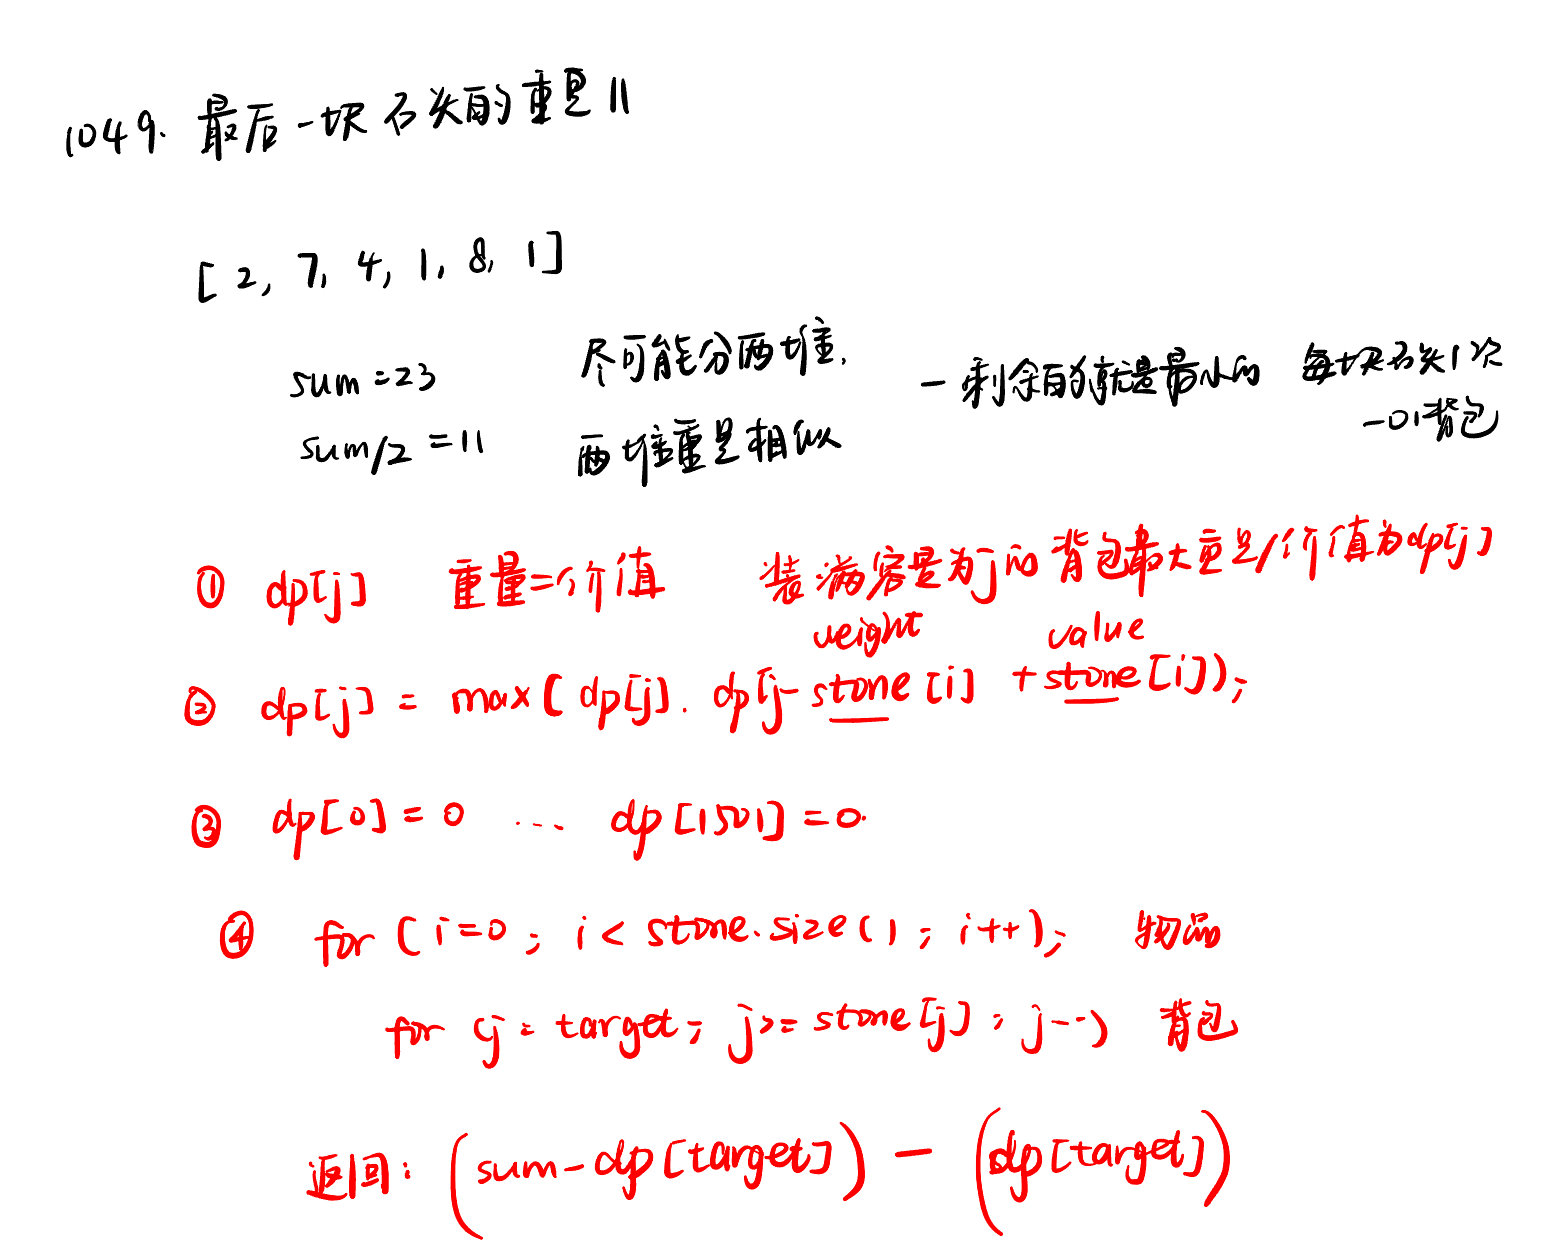 1049. 最后一块石头的重量 II
[2, 7, 4, 1, 8, 1]
sum = 23 尽可能分两堆, — 剩余的就是最小的 每块石头1次
sum/2 = 11 两堆重量相似 — 01背包
① dp[j] 重量=价值 装满容量为j的背包最大重量/价值为dp[j]
weight value
② dp[j] = max( dp[j]. dp[j-stone[i] + stone[i]);
③ dp[0] = 0 ... dp[1501] = 0.
④ for (i=0; i < stone.size(); i++); 物品
for (j = target; j >= stone[j]; j--) 背包
返回: (sum - dp[target]) - (dp[target])